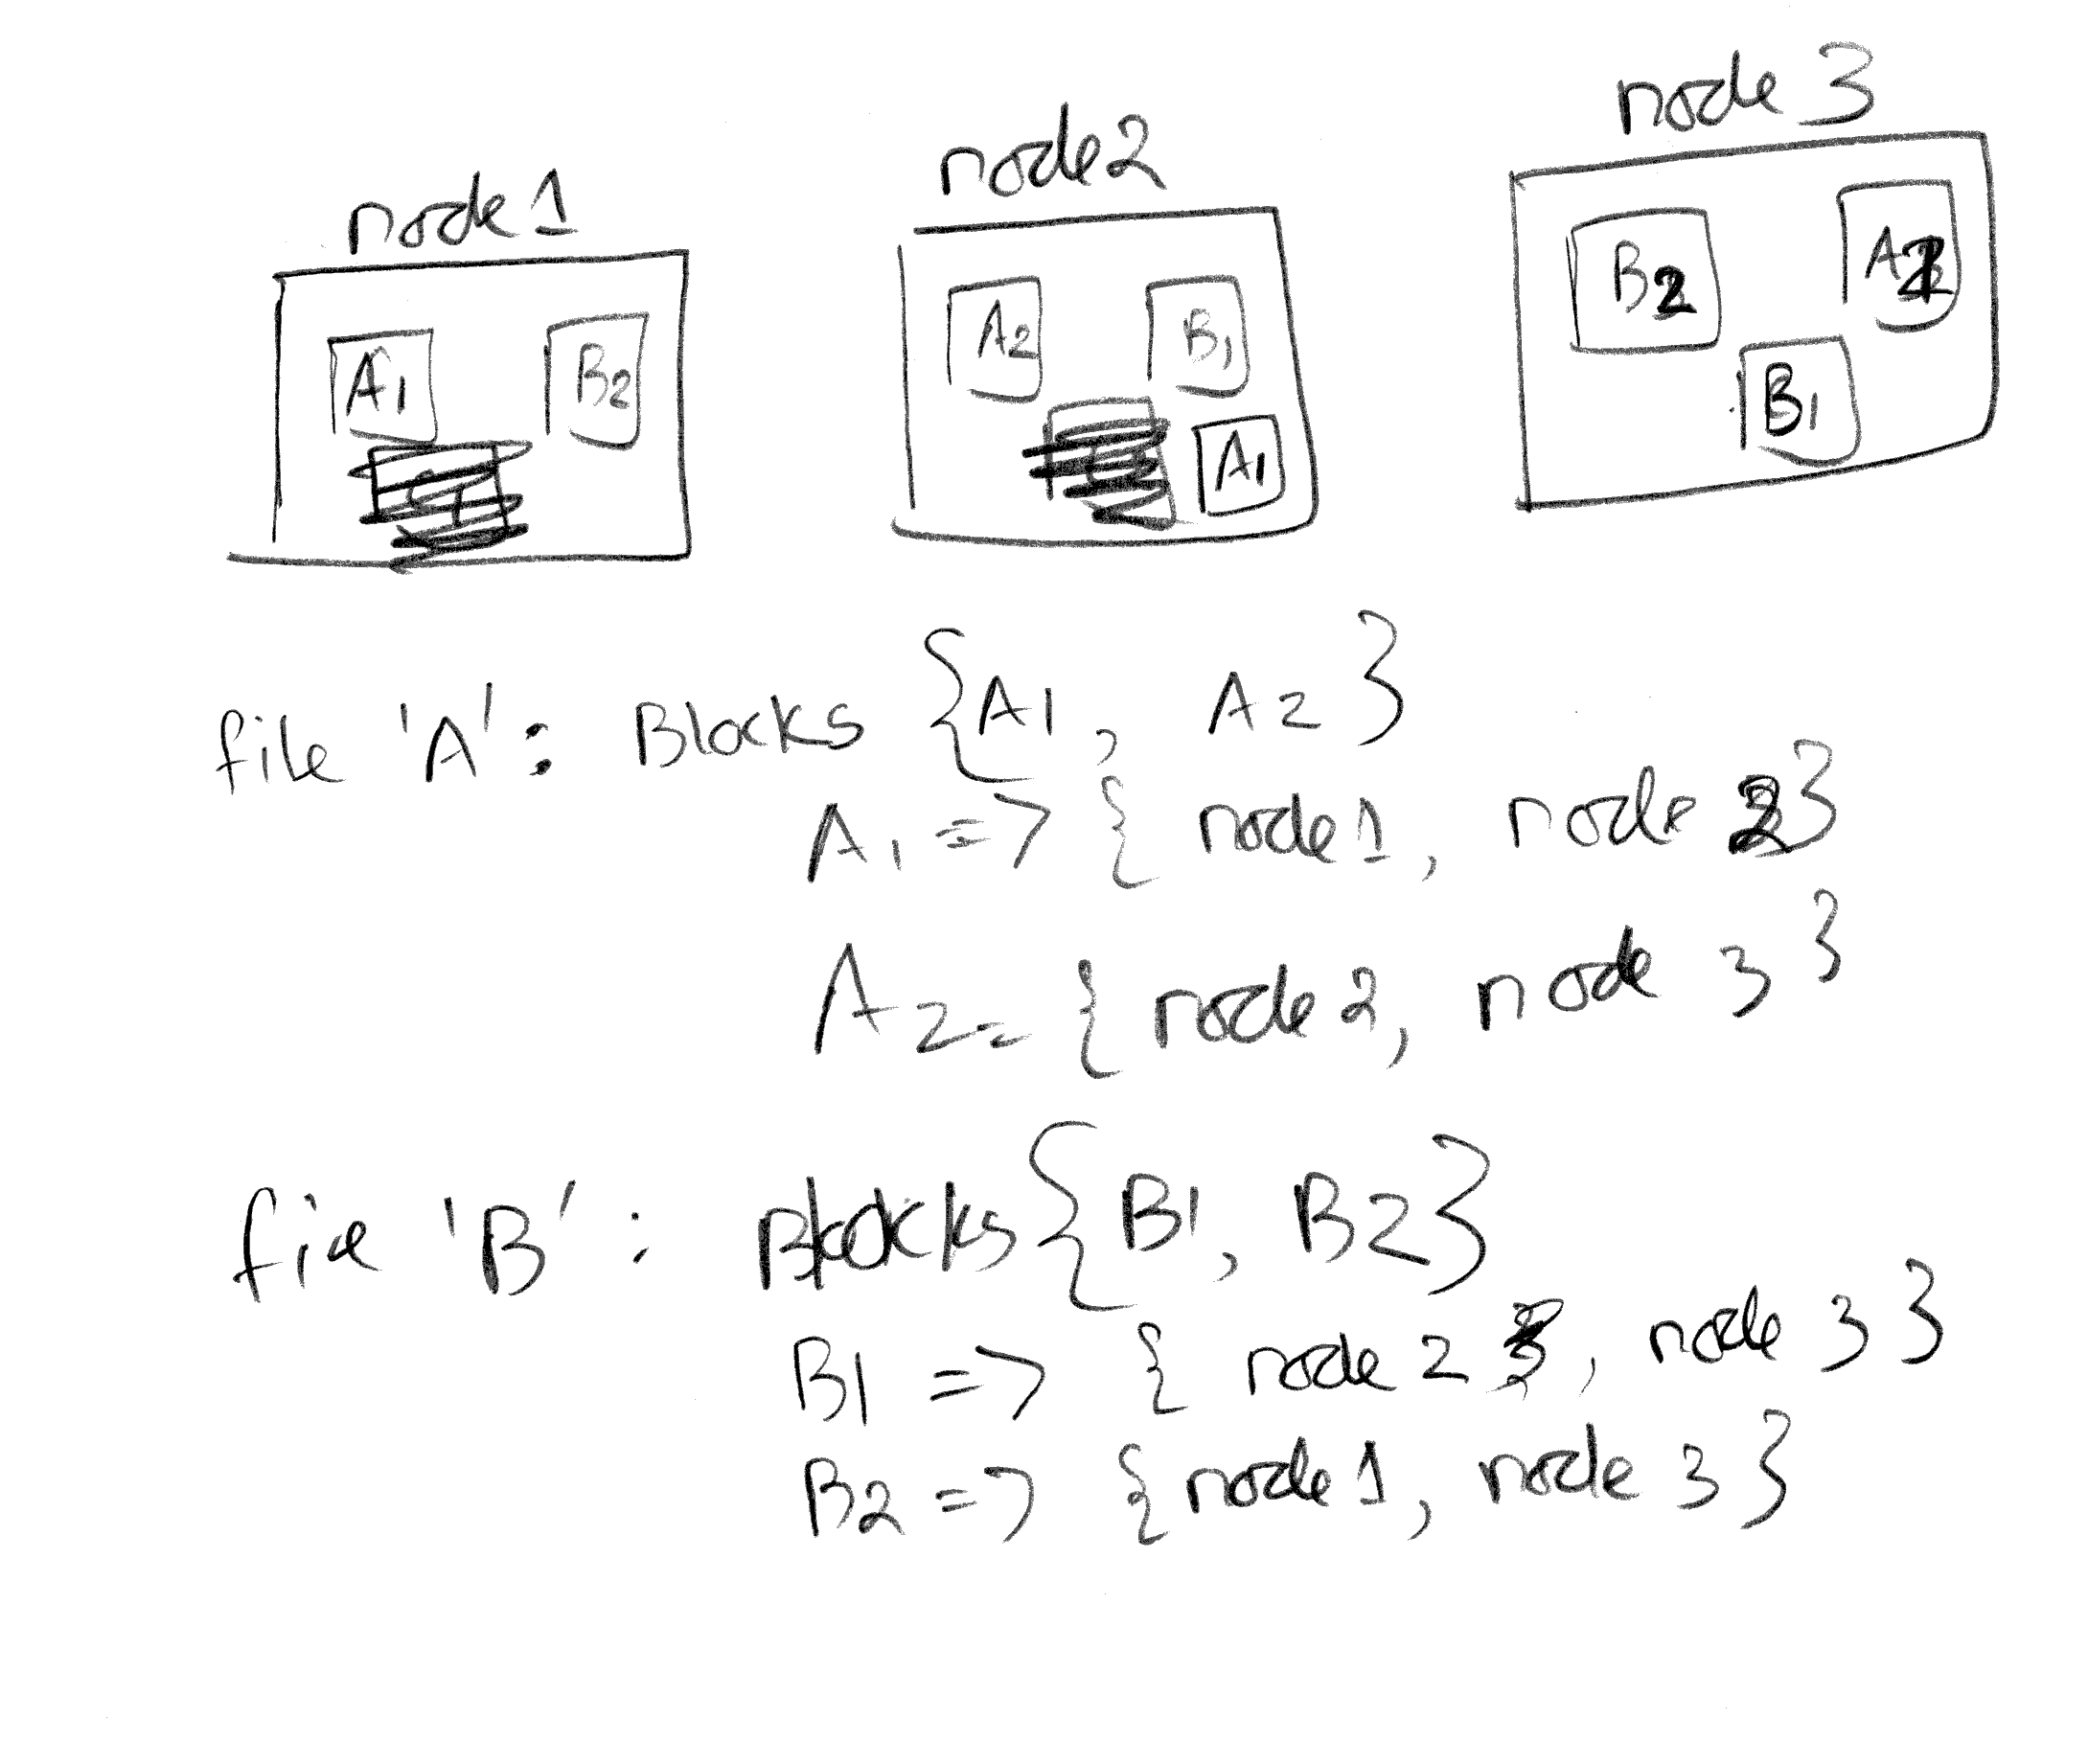 node 1
node 2
node 3
A1
B2
A2
B1
A1
B2
A2
B1
file 'A': Blocks {A1, A2}
A1 => { node 1, node 2}
A2 = { node 2, node 3 }
file 'B': Blocks {B1, B2}
B1 => { node 2 , node 3 }
B2 => { node 1, node 3 }